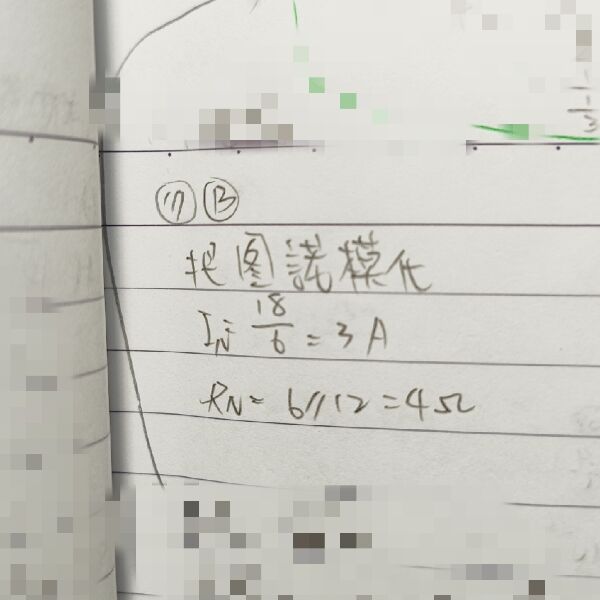 ⑰ Ⓑ
找圖諾模代
I_N = 18/6 = 3A
R_N = 6//12 = 4Ω